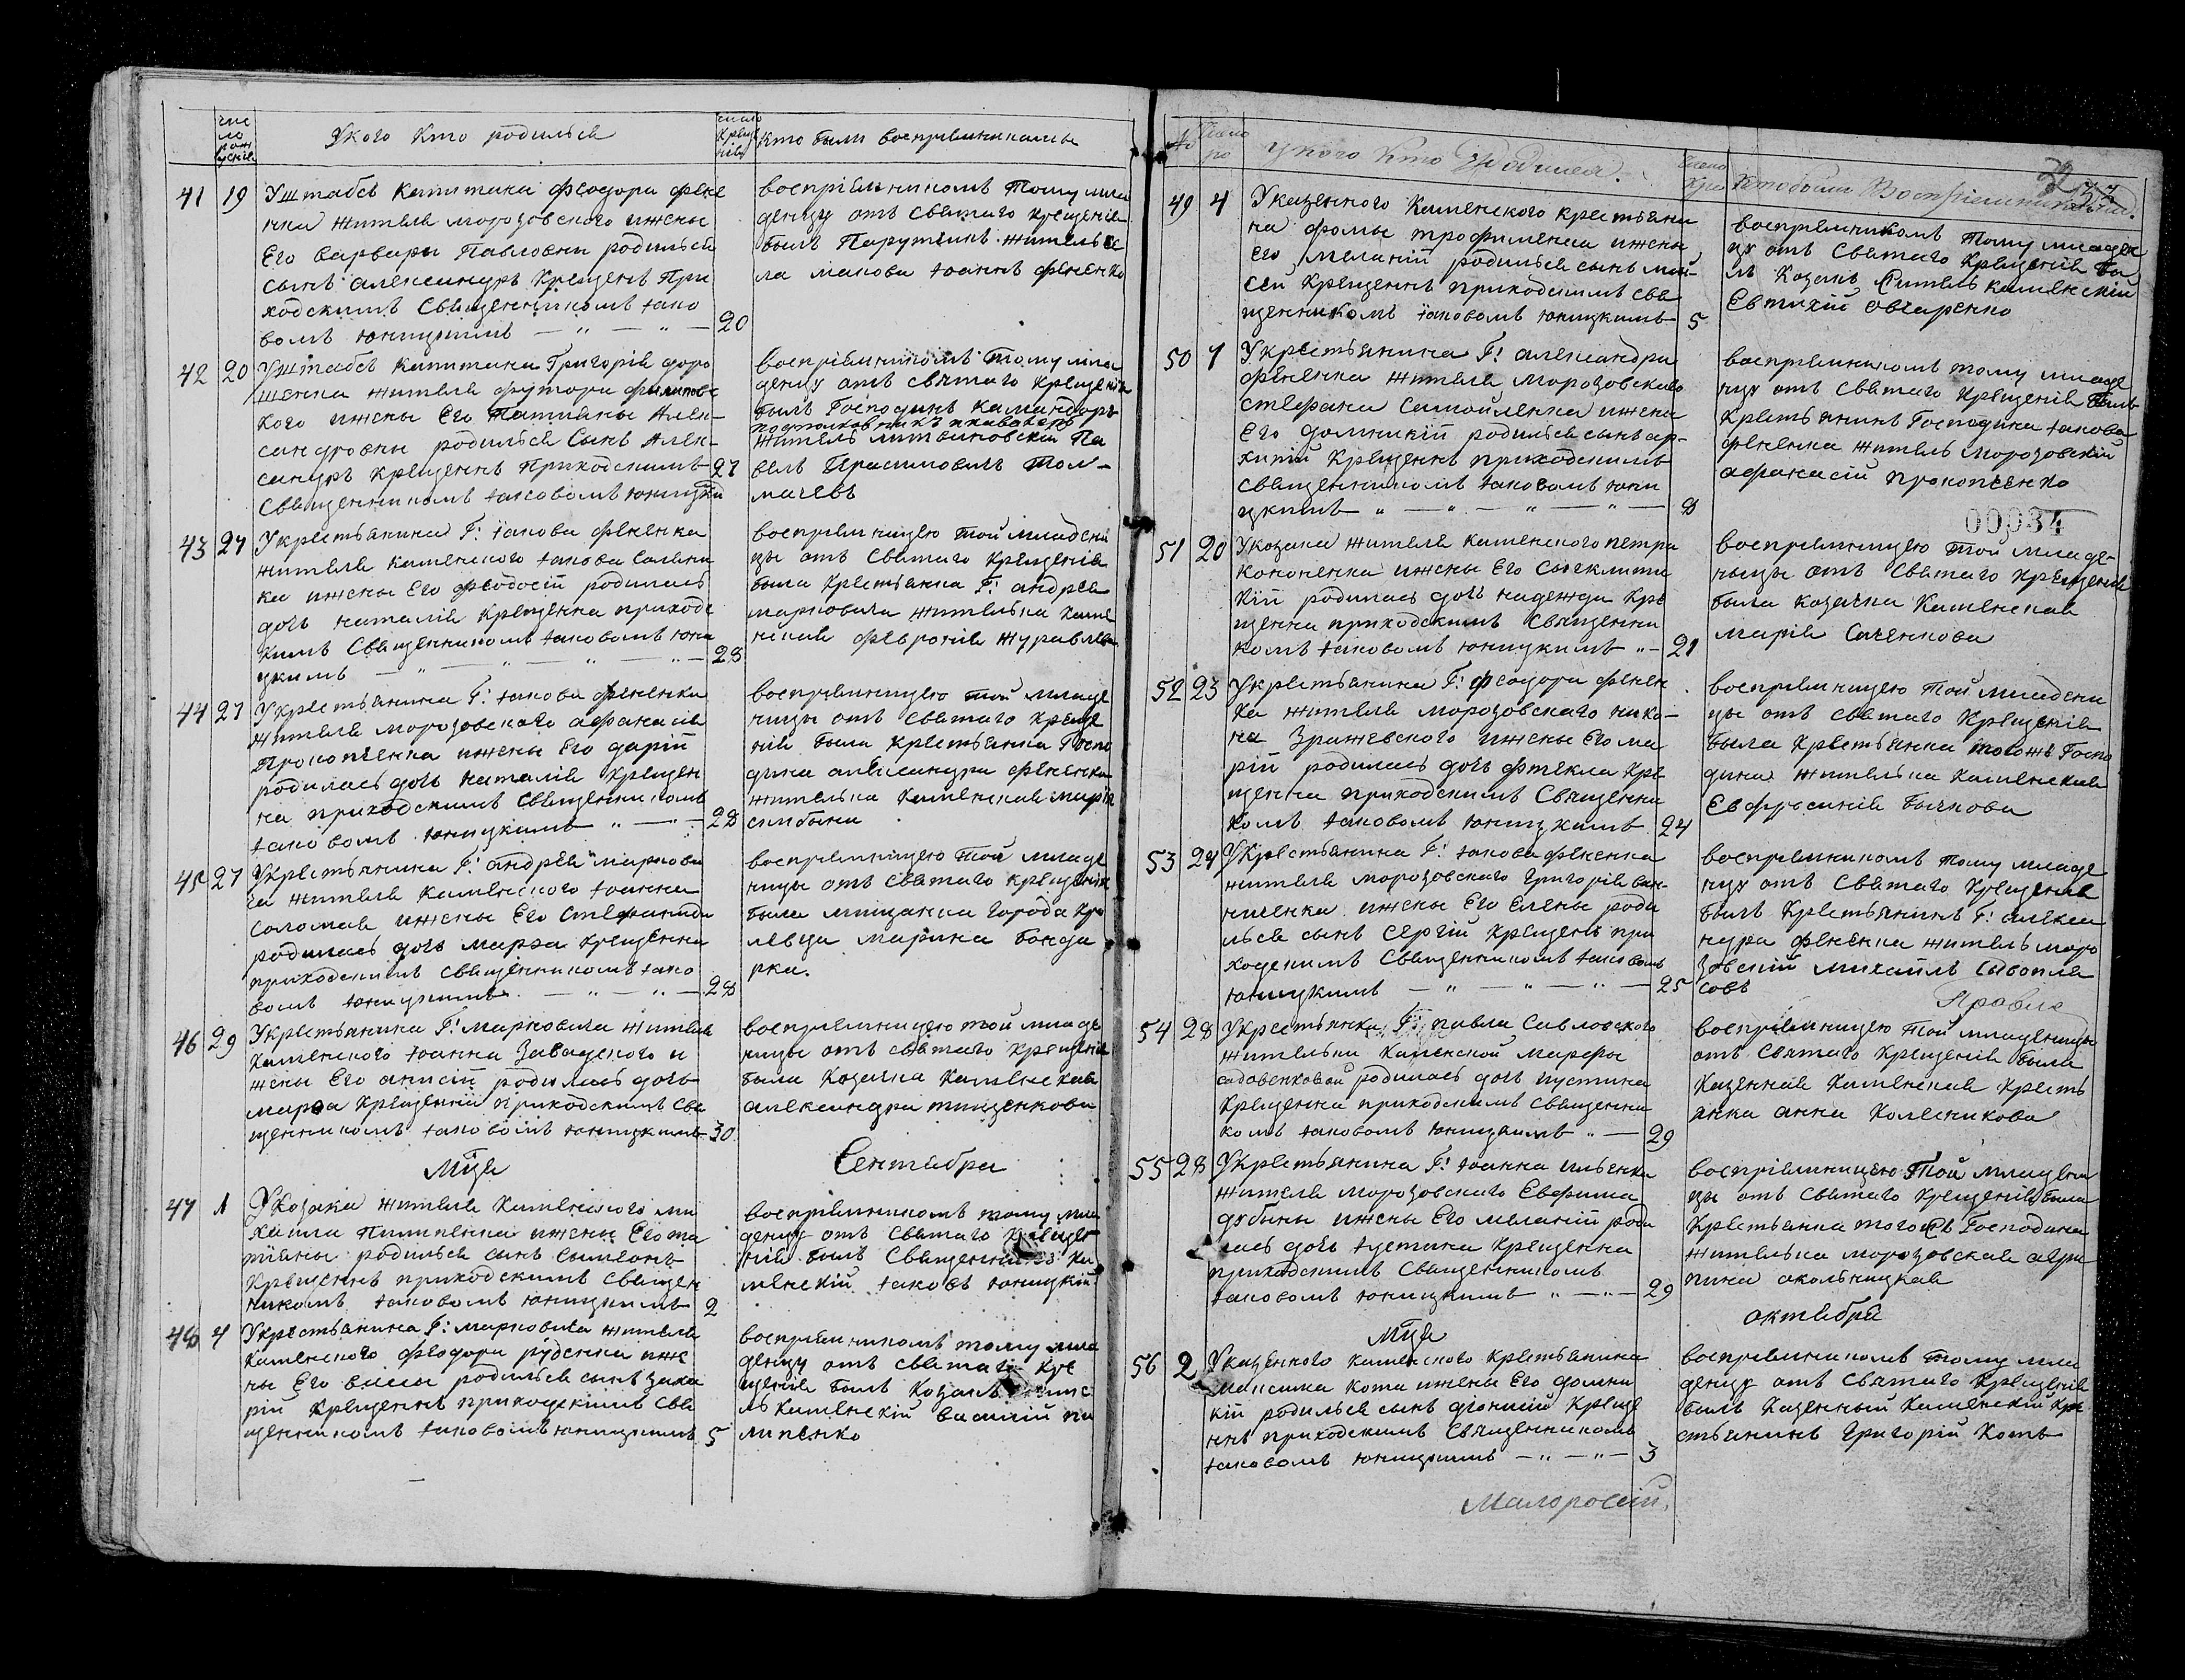 чис
ло
рож
денія
У кого кто родилься
число
креще
нія
кто были воспріемниками
41 19 У штабсъ капитана Феодора Фене
нка жителя морозовского ижены
Его варвары Павловны родилься
сынъ александръ Крещенъ При
ходскимъ Священникомъ Іако
вомъ Юницкимъ — „ — „ — 20
воспріемникомъ тому мла
денцу отъ Святаго Крещенія
былъ Парутчикъ житель се
ла макова Іоаннъ Фененко
42 20 У штабсъ Капитана Григорія доро
шенка жителя футора филиповс
кого ижены Его Татианы Алек-
сандровны родилься Сынъ Алек-
сандръ Крещеннъ Приходскимъ 21
Священникомъ Іаковомъ Юницки
воспріемникомъ тому мла
денцу отъ святаго крещенія
былъ Господинъ Камандоръ
подполковникъ и кавалеръ
житель литвиновскій Па
велъ Герасимовичъ Тол-
мачевъ
43 27 У крестьянина Г: Іакова Фененка
жителя каменского Іакова Солени
ка ижены Его Феодосіи родилась
дочь наталія Крещенна приходс
кимъ Священникомъ Іаковомъ Юни
цкимъ — „ — „ — „ — „ — 28
воспріемницею той младени
цы отъ Святаго Крещенія
была Крестьянка Г: андрея
марковича жителька Каме
нская Февронія Журавлева
44 27 У крестьянина Г: Іакова Фененка
жителя морозовского афанасія
Прокопченка ижены Его дарій
родилась дочь наталія Крещен
на приходскимъ Священникомъ
Іаковомъ Юницкимъ „ — „ — 28
воспріемницею той младе
ницы отъ святаго Креще
нія была Крестьянка Госпо
дина александра Фененка
жителька Каменская марія
симбына
45 27 У крестьянина Г: андрея маркови
ча жителя Каменского Іоанна
Соломая ижены Его Стефаниды
родилась дочь марѳа Крещенна
приходскимъ священникомъ Іако
вомъ Юницкимъ — „ — „ — 28
воспріемницею той младе
ницы отъ святаго крещенія
была мищанка города Кро
левца марина бонда
рка.
46 29 У крестьянина Г: Марковича жителя
Каменского Іоанна Завадского и
жены Его анисіи родилась дочь
марѳа Крещенна приходскимъ Свя
щенникомъ Іаковомъ Юницкимъ 30
воспріемницею той младе
ницы отъ святаго Крещенія
была Козачка Каменская
александра тищенкова
Мца
Сентабра
47 1 У Козака жителя Каменского ми
хаила Пилипенка ижены Его та
тіаны родилься сынъ Симеонъ
Крещеннъ приходскимъ священ
никомъ Іаковомъ Юницкимъ 2
воспріемникомъ тому мла
денцу отъ Святаго Креще
нія былъ Священникъ Ка
менскій Іаковъ Юницкій
48 4 У крестьянина Г: Марковича жителя
Каменского Феодора руденка иже
ны Его родилься сынъ заха
рій Крещеннъ приходскимъ Свя
щенникомъ Іаковомъ Юницкимъ 5
воспріемникомъ тому мла
денцу отъ святаго Кре
щенія былъ Козакъ
ль Каменскій василій пи
липенко
№ Число
ро
У кого Кто Зродился.
Число
Кре
Кто были Воспріемниками.
49 4 У казенного Каменского крестьяни
на Фомы трофименка ижены
его меланій родилься сынъ мои-
сей Крещеннъ приходскимъ свя
щенникомъ Іаковомъ Юницкимъ 5
воспріемникомъ тому младен
цу отъ Святаго Крещенія бы
лъ Козакъ житель каменскій
Евтихій овчаренко
50 7 У крестьянина Г: александра
Фененка жителя морозовского
стефана Самойленка ижены
Его домникій родилься сынъ ар-
хипій Крещеннъ приходскимъ
священникомъ Іаковомъ Юни
цкимъ „ — „ — „ — „ — 8
воспріемникомъ тому младе
нцу отъ святаго Крещенія былъ
Крестьянинъ Господина Іакова
Фененка житель морозовскій
афанасій прокопченко
00034
51 20 У козака жителя каменского петра
Кононенка ижены Его Синклити
кій родилась дочь надежда Кре
щенна приходскимъ Священни
комъ Іаковомъ Юницкимъ „ — 21
воспріемницею той младе-
ницы отъ Святаго Крещенія
была козачка Каменская
марія Саченкова
52 23 У крестьянина Г: Феодора Фенен
ка жителя морозовского нико-
на Зражевского ижены Его ма
рій родилась дочь Фтекла Кре
щенна приходскимъ Священни
комъ Іаковомъ Юницкимъ 24
воспріемницею той младени
цы отъ святаго Крещенія
была Крестьянка тогожъ Госпо
дина жителька Каменская
Евфросинія бычкова
53 24 У крестьянина Г: Іакова Фененка
жителя морозовского григорія ван-
ниченка ижены Его Елены роди
лься сынъ Сергій Крещенъ при
ходскимъ Священникомъ Іаковомъ
Юницкимъ — „ — „ — „ — 25
воспріемникомъ тому младе
нцу отъ Святаго Крещенія
былъ Крестьянинъ Г: алекса
ндра Фененка житель моро
зовскій михаилъ
совъ
54 28 У крестьянки Г: павла Савловского
жительки Каменской Марфы
садовенковой родилась дочь иустина
Крещенна приходскимъ Священни
комъ Іаковомъ Юницкимъ „ — 29
воспріемницею той младеницы
отъ Святаго Крещенія была
Казенная Каменская Кресть
янка анна Колесникова
55 28 У крестьянина Г: Іоанна ильенка
жителя морозовского Евфима
дубины ижены Его меланій роди
лась дочь Іустина Крещенна
приходскимъ Священникомъ
Іаковомъ Юницкимъ „ — „ — 29
воспріемницею той младени
цы отъ святаго Крещенія была
Крестьянка тогожъ Господина
жителька морозовская агри
пина акольницкая
Мца
октабра
56 2 У казенного каменского Крестьянина
максима кота ижены Его домни
кій родилься сынъ діонисій Креще
ннъ приходскимъ Священникомъ
Іаковомъ Юницкимъ — „ — „ — 3
воспріемникомъ тому мла
денцу отъ Святаго Крещенія
былъ Казенный Каменскій Кре
стьянинъ Григорій Котъ
Малоросій